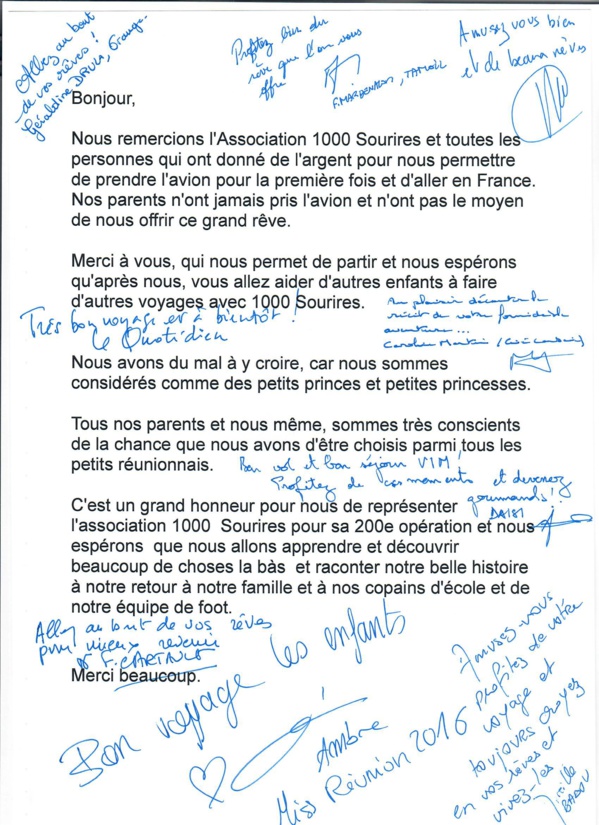 Allez au bout
de vos rêves !
Géraldine
Profitez bien du
rêve que l'on vous
offre
Amusez vous bien
et de beaux rêves
Bonjour,
Nous remercions l'Association 1000 Sourires et toutes les
personnes qui ont donné de l'argent pour nous permettre
de prendre l'avion pour la première fois et d'aller en France.
Nos parents n'ont jamais pris l'avion et n'ont pas le moyen
de nous offrir ce grand rêve.
Merci à vous, qui nous permet de partir et nous espérons
qu'après nous, vous allez aider d'autres enfants à faire
d'autres voyages avec 1000 Sourires.
Très bon voyage et à bientôt !
le Quotidien
Au plaisir d'écouter le
récit de votre formidable
aventure...
Nous avons du mal à y croire, car nous sommes
considérés comme des petits princes et petites princesses.
Tous nos parents et nous même, sommes très conscients
de la chance que nous avons d'être choisis parmi tous les
petits réunionnais.
Bon vol et bon séjour VIM !
Profitez de ces moments et devenez
gourmands !
C'est un grand honneur pour nous de représenter
l'association 1000 Sourires pour sa 200e opération et nous
espérons que nous allons apprendre et découvrir
beaucoup de choses la bàs et raconter notre belle histoire
à notre retour à notre famille et à nos copains d'école et de
notre équipe de foot.
Allez au bout de vos rêves
pour mieux revenir
F. CARTAULT
Merci beaucoup.
Bon voyage les enfants
Ambre
Miss Réunion 2016
Amusez-vous
profitez de votre
voyage et
toujours croyez
en vos rêves et
vivez-les